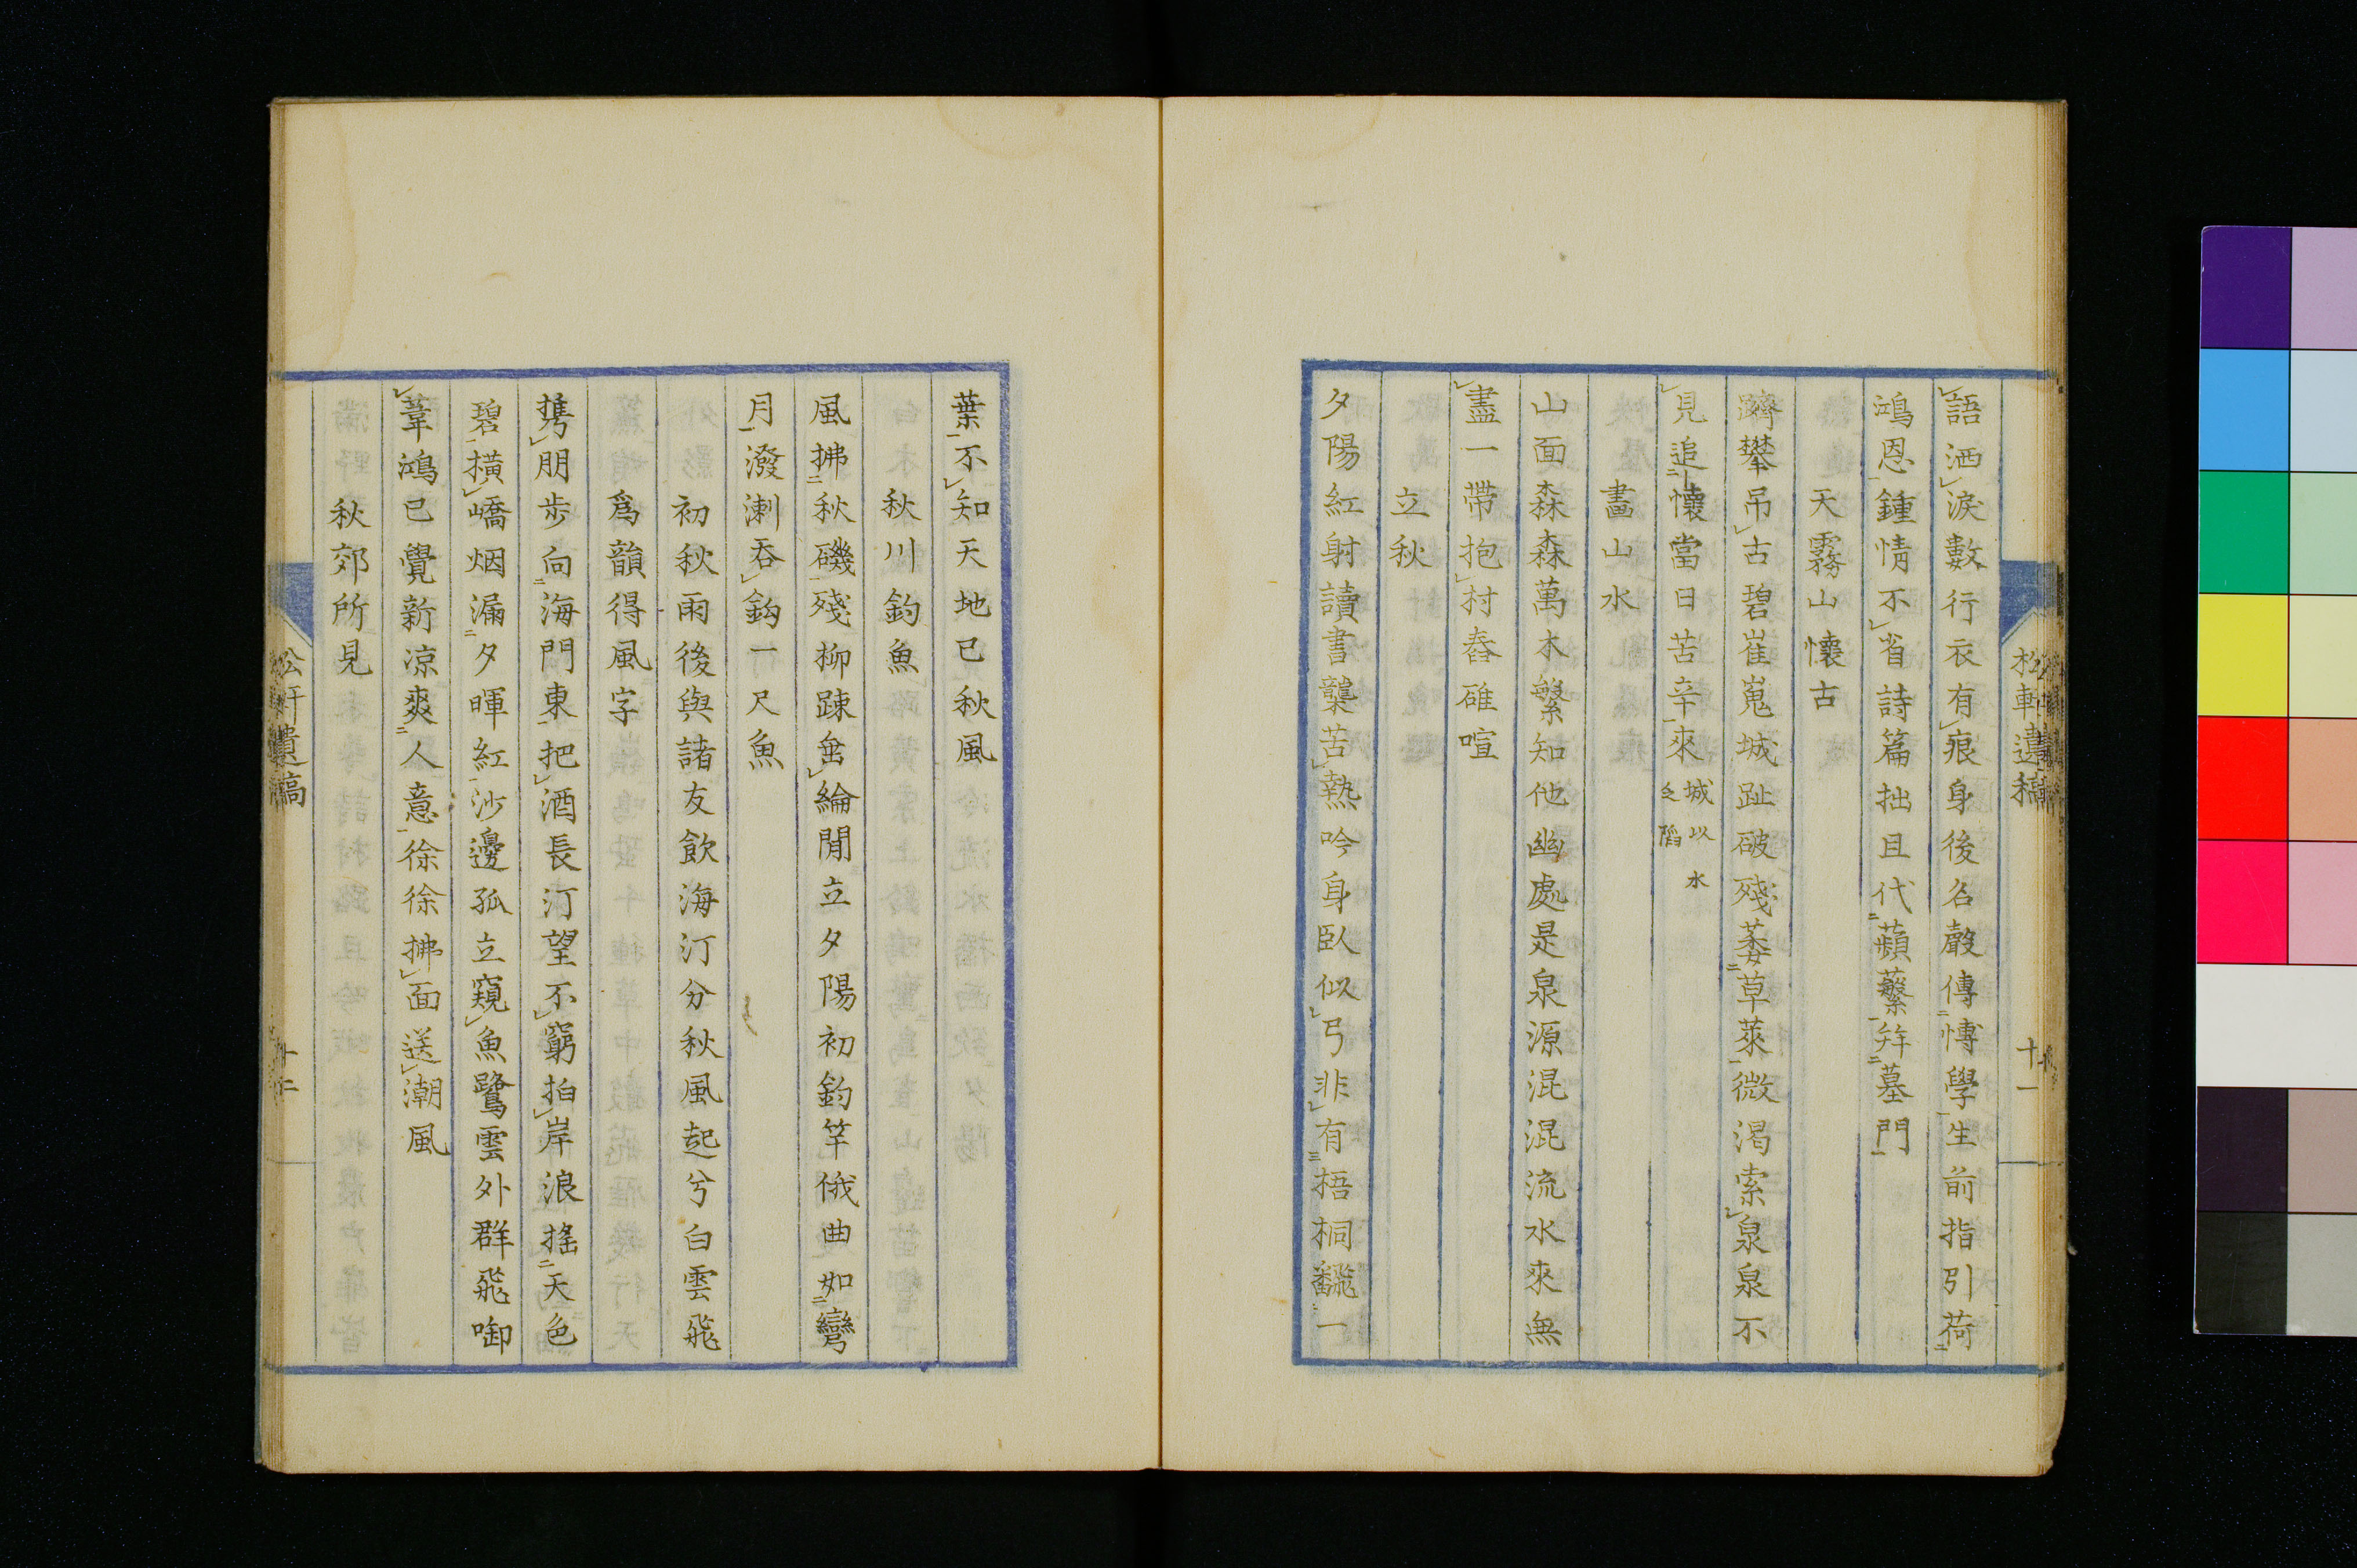 松軒遺稿
十一
語洒淚數行衣有痕身後名聲傳愽學生前指引荷
鴻恩鍾情不省詩篇拙且代蘋蘩弁墓門
天霧山懷古
躋攀吊古碧崔嵬城趾破殘萎草萊微渴索泉泉不
見追懷當日苦辛來城以水
乏陷
畫山水
山面森森萬木繁知他幽處是泉源混混混流水來無
盡一帶抱村舂碓喧
立秋
夕陽紅射讀書龑苦熱吟身臥似弓非有梧桐飜一
葉不知天地已秋風
秋川釣魚
風拂秋磯殘柳踈垂綸閒立夕陽初釣竿俄曲如彎
月潑溂吞鈎一尺魚
初秋雨後與諸友飲海汀分秋風起兮白雲飛
爲韻得風字
携朋步向海門東把酒長汀望不窮拍岸浪搖天色
碧橫嶠烟漏夕暉紅沙邊孤立窺魚鷺雲外群飛啣
葦鴻已覺新凉爽人意徐徐拂面送潮風
秋郊所見
松軒遺稿
十二